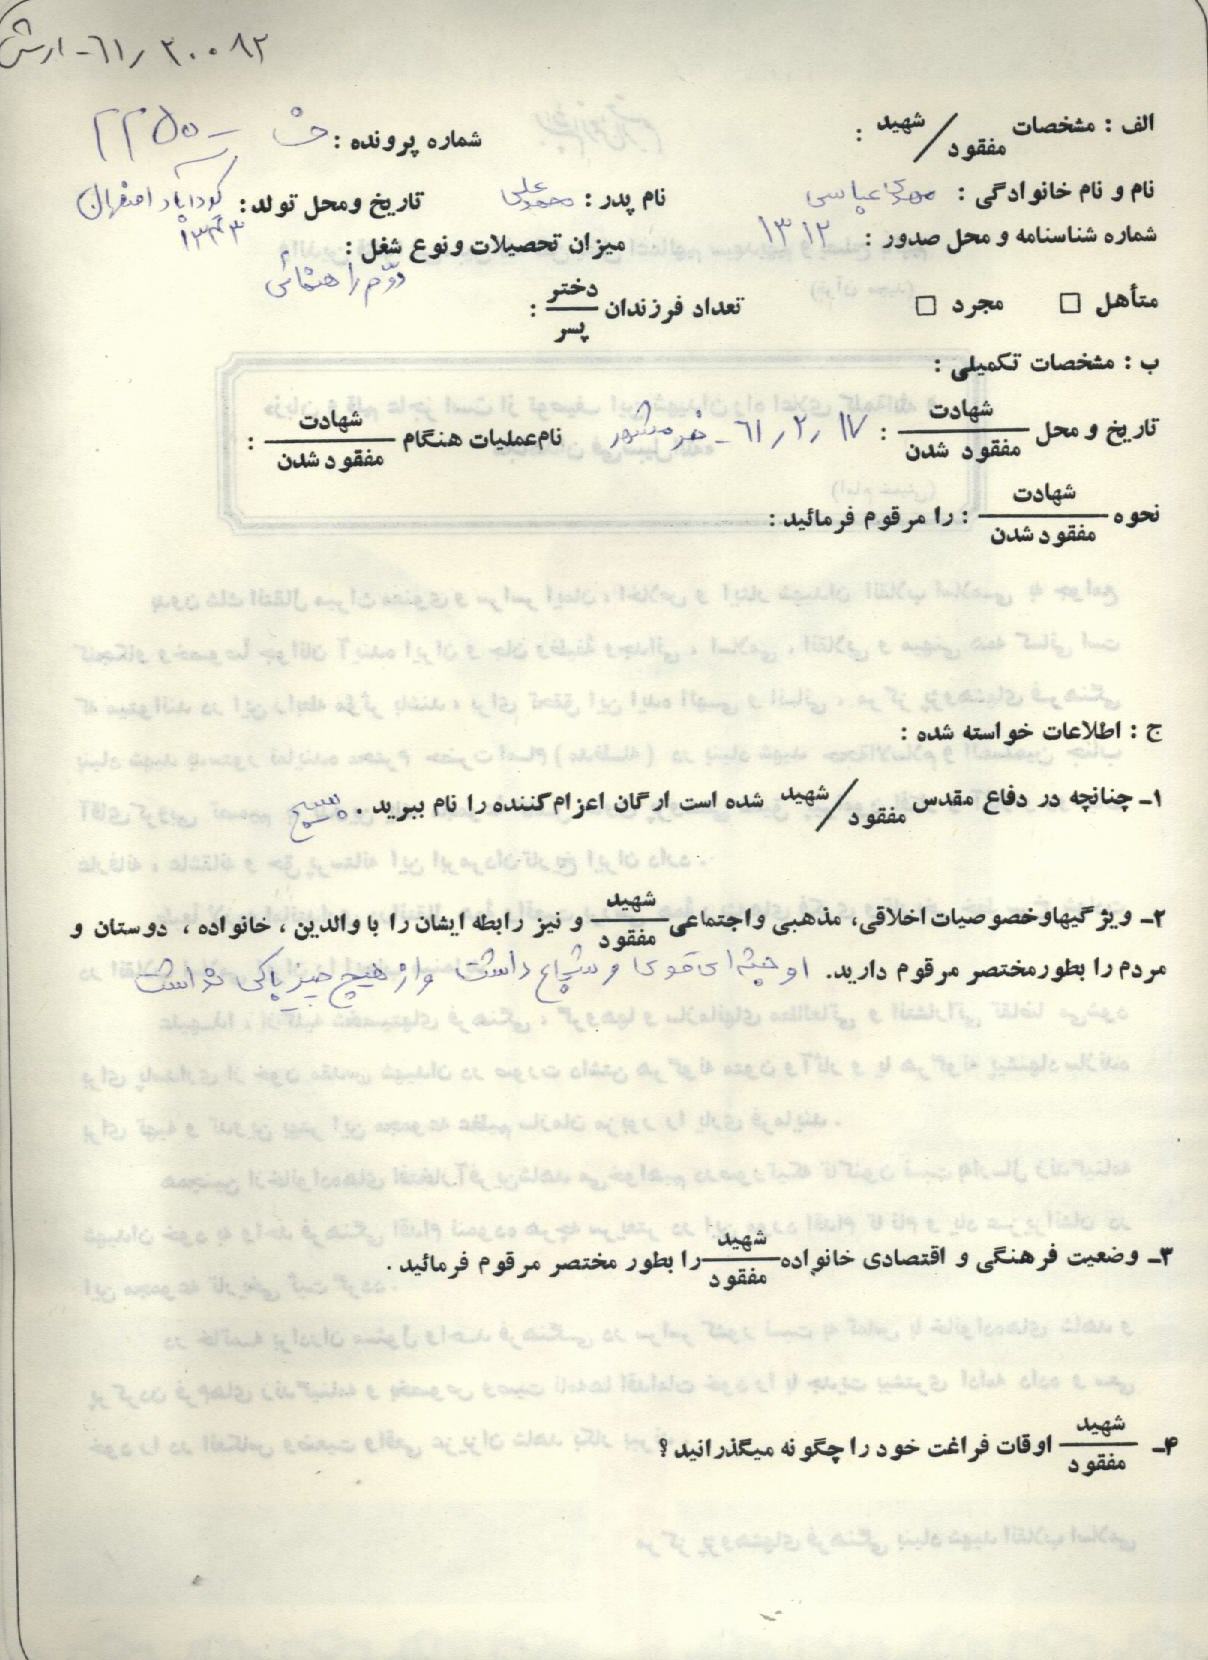 ۶۱/۲۰۰۸۲ -
الف : مشخصات شهید / مفقود :
شماره پرونده :
نام و نام خانوادگی : مهدی عباسی
نام پدر : محمد علی
تاریخ و محل تولد : گورداباد اصفهان
۱۳۴۳
شماره شناسنامه و محل صدور : ۱۳۱۲
میزان تحصیلات و نوع شغل :
دوّم راهنمائی
متأهل □ مجرد □ تعداد فرزندان دختر / پسر :
ب : مشخصات تکمیلی :
تاریخ و محل شهادت / مفقود شدن : ۶۱/۲/۱۷ - خرمشهر نام عملیات هنگام شهادت / مفقود شدن :
نحوه شهادت / مفقود شدن : را مرقوم فرمائید :
ج : اطلاعات خواسته شده :
۱- چنانچه در دفاع مقدس شهید / مفقود شده است ارگان اعزام کننده را نام ببرید . بسیج
۲- ویژگیها و خصوصیات اخلاقی، مذهبی و اجتماعی شهید / مفقود و نیز رابطه ایشان را با والدین ، خانواده ، دوستان و
مردم را بطور مختصر مرقوم دارید. او جثه ای قوی و شجاع داشت و از هیچ چیز باکی نداشت
۳- وضعیت فرهنگی و اقتصادی خانواده شهید / مفقود را بطور مختصر مرقوم فرمائید .
۴- شهید / مفقود اوقات فراغت خود را چگونه میگذرانید ؟